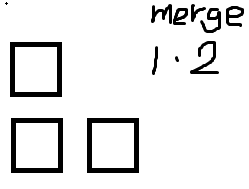 merge
1 · 2